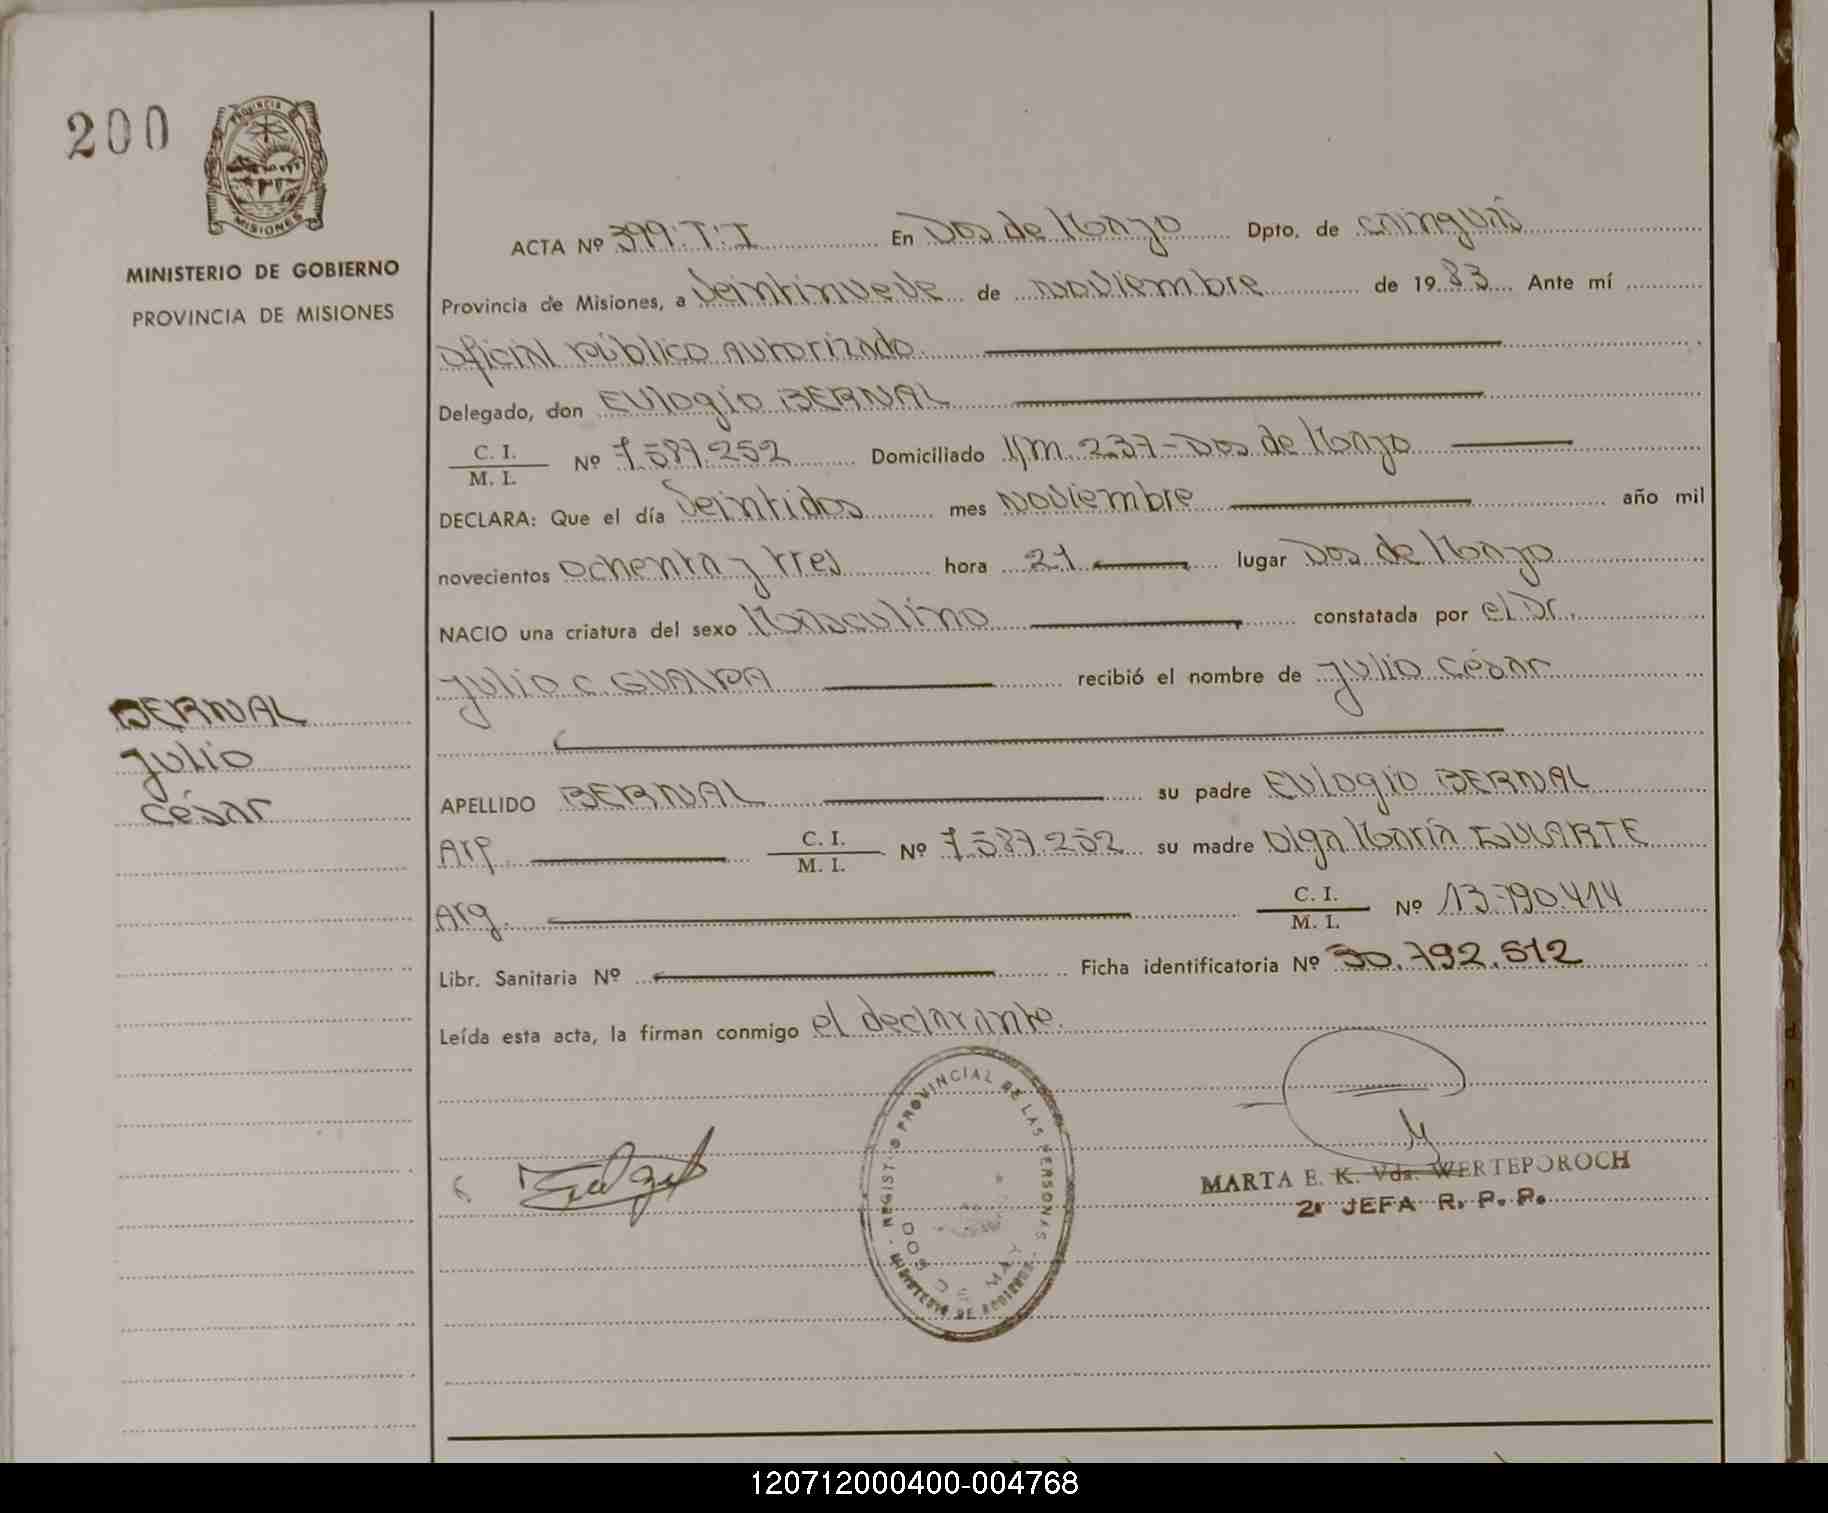 200
PROVINCIA
MISIONES
MINISTERIO DE GOBIERNO
PROVINCIA DE MISIONES
ACTA Nº 399.T.I En Dos de Mayo Dpto. de Cainguás
Provincia de Misiones, a Veintinueve de Noviembre de 1983 Ante mí
Oficial Público Autorizado
Delegado, don Eulogio BERNAL
C. I.
M. I. Nº 7.587.252 Domiciliado Km 237-Dos de Mayo
DECLARA: Que el día Veintidos mes Noviembre año mil
novecientos Ochenta y tres hora 21 lugar Dos de Mayo
NACIO una criatura del sexo Masculino constatada por el Dr.
Julio C. recibió el nombre de Julio César
BERNAL
Julio
César
APELLIDO BERNAL su padre Eulogio BERNAL
Arg. C. I.
M. I. Nº 7.587.252 su madre Olga María DUARTE
Arg. C. I.
M. I. Nº 13.790.414
Libr. Sanitaria Nº Ficha identificatoria Nº 30.792.512
Leída esta acta, la firman conmigo el declarante.
REGISTRO PROVINCIAL DE LAS PERSONAS
DOS DE MAYO
MINISTERIO DE GOBIERNO
MARTA E. K. Vda. WERTEPOROCH
2ª JEFA R. P. P.
120712000400-004768